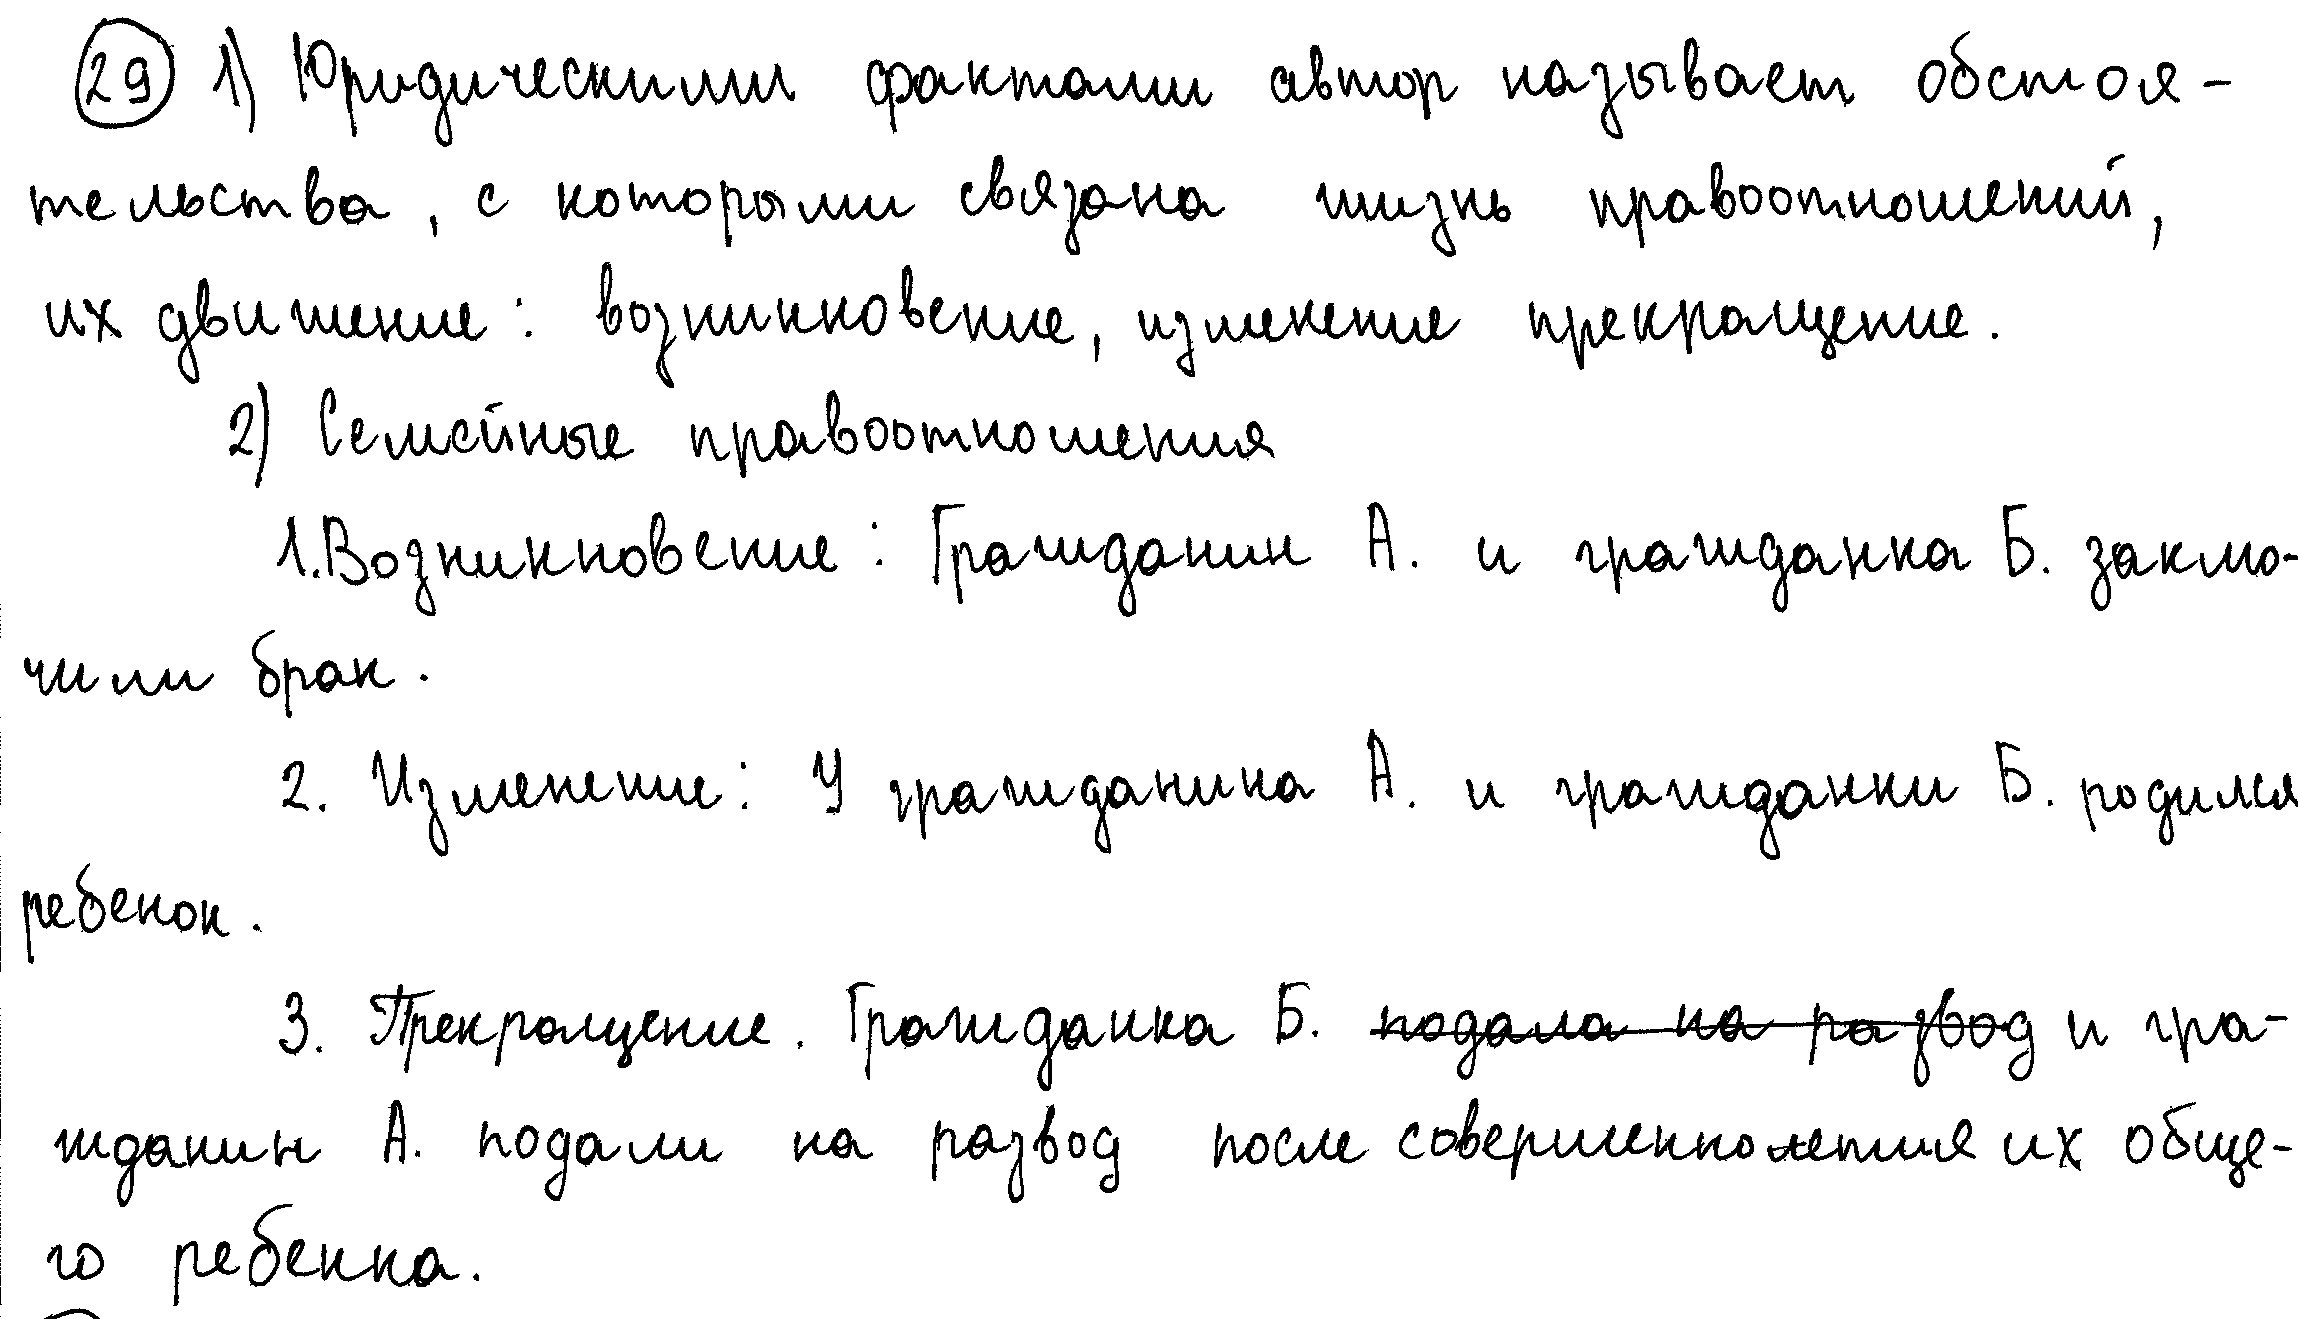 29 1) Юридическими фактами автор называет обстоя-
тельства, с которыми связана жизнь правоотношений,
их движение: возникновение, изменение прекращение.
2) Семейные правоотношения
1. Возникновение: Гражданин А. и гражданка Б. заклю-
чили брак.
2. Изменение: У гражданина А. и гражданки Б. родился
ребенок.
3. Прекращение. Гражданка Б. подала на развод и гра-
жданин А. подали на развод после совершеннолетия их обще-
го ребенка.